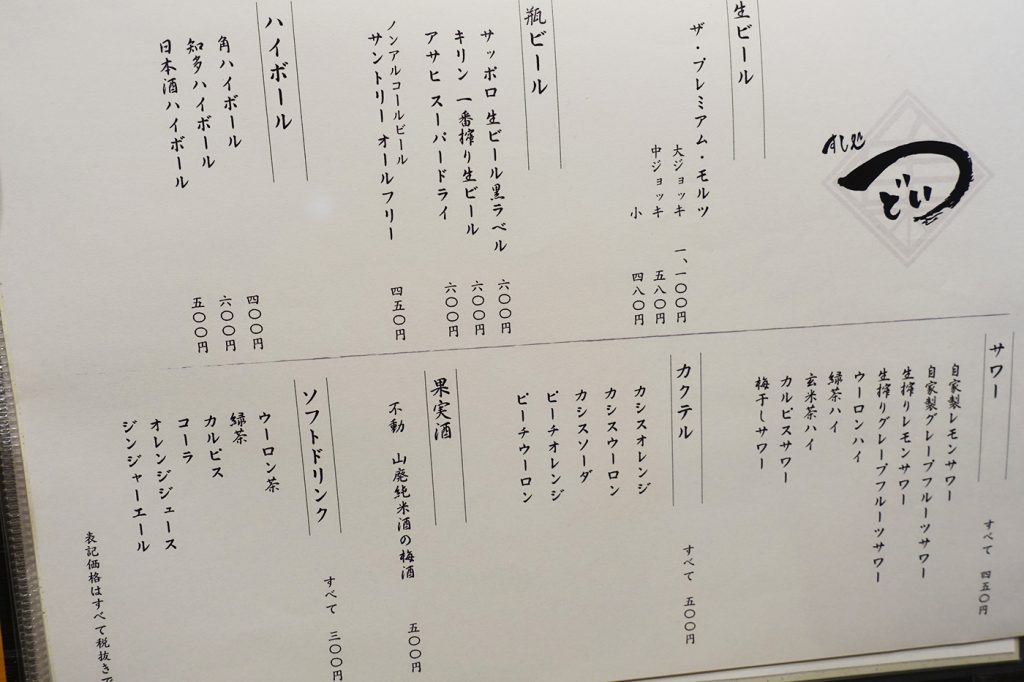 すし処
つどい
生ビール
ザ・プレミアム・モルツ
大ジョッキ 一、一〇〇円
中ジョッキ 五八〇円
小 四八〇円
瓶ビール
サッポロ 生ビール黒ラベル 六〇〇円
キリン 一番搾り生ビール 六〇〇円
アサヒ スーパードライ 六〇〇円
ノンアルコールビール
サントリー オールフリー 四五〇円
ハイボール
角ハイボール 四〇〇円
知多ハイボール 六〇〇円
日本酒ハイボール 五〇〇円
サワー
すべて 四五〇円
自家製レモンサワー
自家製グレープフルーツサワー
生搾りレモンサワー
生搾りグレープフルーツサワー
ウーロンハイ
緑茶ハイ
玄米茶ハイ
カルピスサワー
梅干しサワー
カクテル
すべて 五〇〇円
カシスオレンジ
カシスウーロン
カシスソーダ
ピーチオレンジ
ピーチウーロン
果実酒
不動 山廃純米酒の梅酒 五〇〇円
ソフトドリンク
すべて 三〇〇円
ウーロン茶
緑茶
カルピス
コーラ
オレンジジュース
ジンジャーエール
表記価格はすべて税抜きで